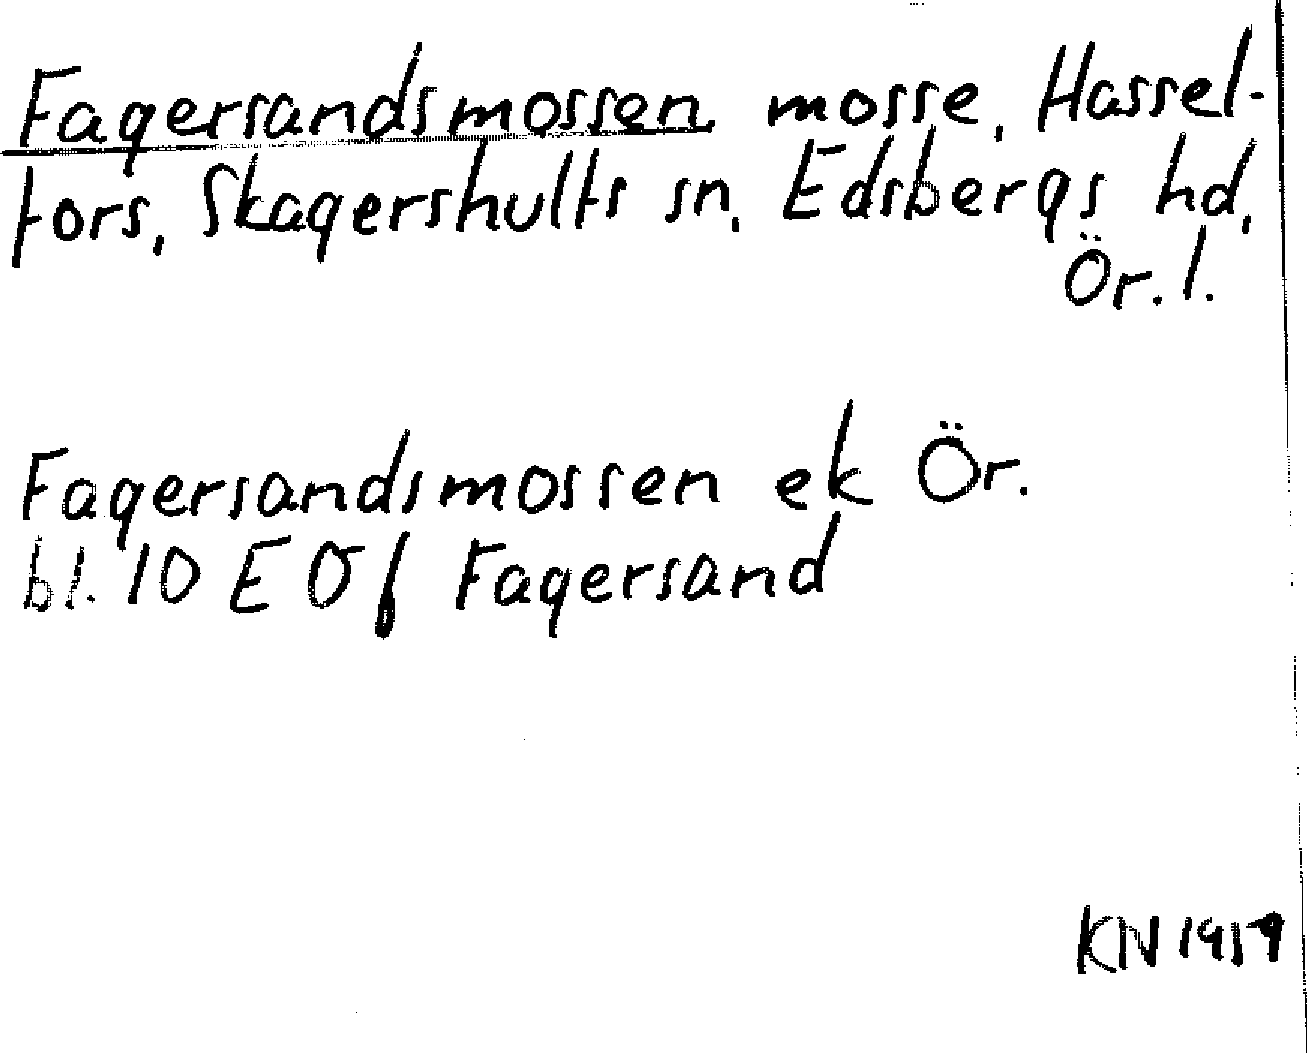 Fagersandsmossen mosse, Hassel-
fors, Skagershults sn, Edsbergs hd,
Ör. l.
Fagersandsmossen ek Ör.
bl. 10 E 0 f Fagersand
KN